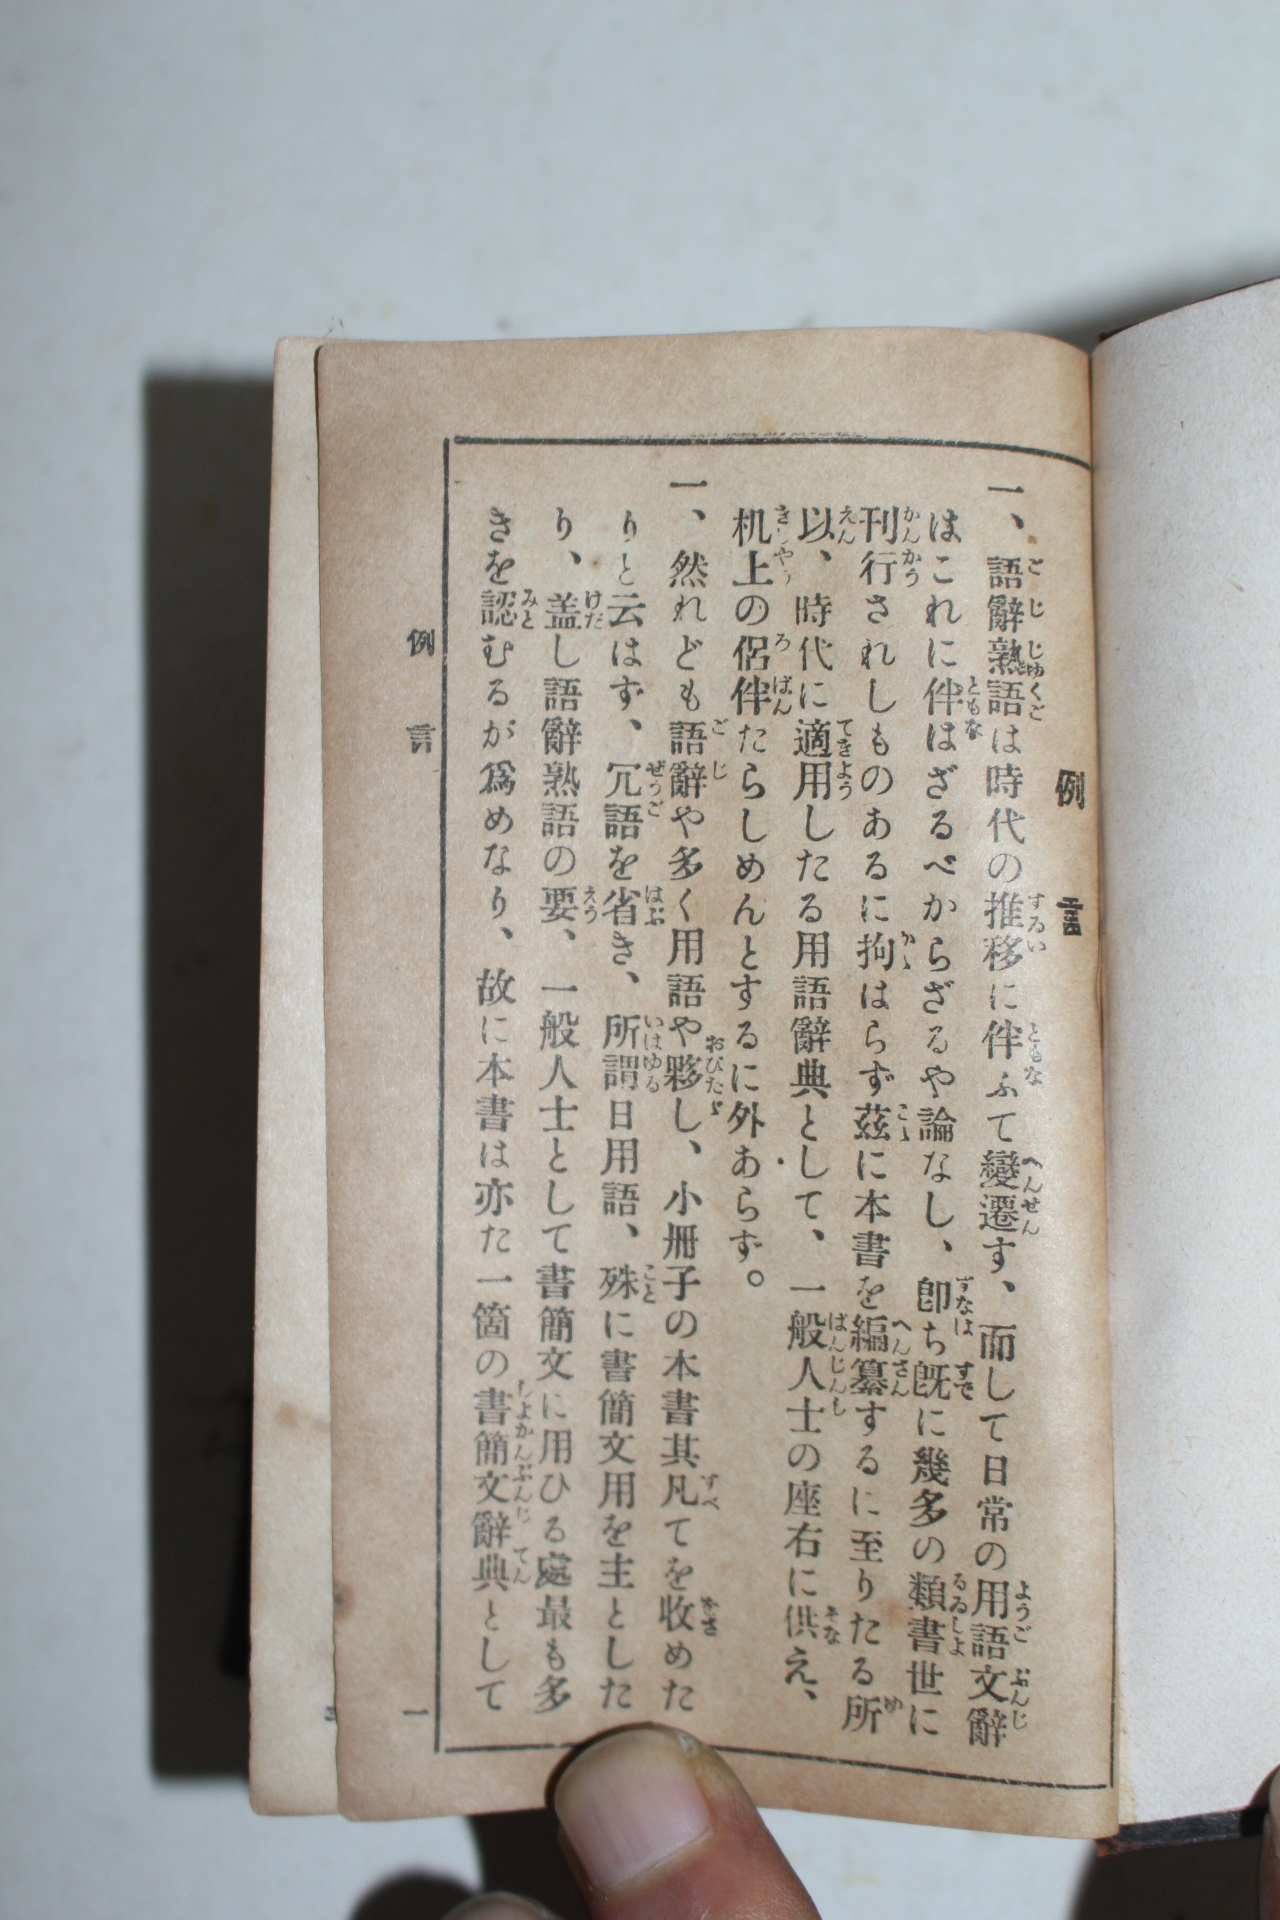 例言
一、語辭熟語は時代の推移に伴ふて變遷す、而して日常の用語文辭
はこれに伴はざるべからざるや論なし、卽ち既に幾多の類書世に
刊行されしものあるに拘はらず茲に本書を編纂するに至りたる所
以、時代に適用したる用語辭典として、一般人士の座右に供え、
机上の侶伴たらしめんとするに外あらず。
一、然れども語辭や多く用語や夥し、小冊子の本書其凡てを收めた
りと云はず、冗語を省き、所謂日用語、殊に書簡文用を主とした
り、盖し語辭熟語の要、一般人士として書簡文に用ひる處最も多
きを認むるが爲めなり、故に本書は亦た一箇の書簡文辭典として
例言
一